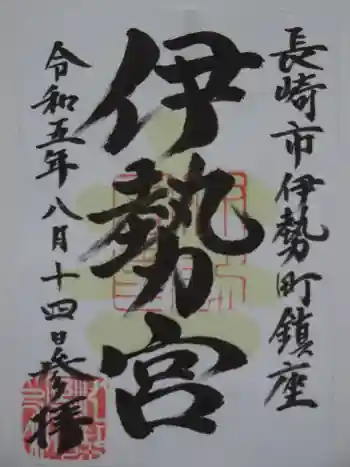 長崎市伊勢町鎮座
伊勢宮
令和五年八月十四日参拝